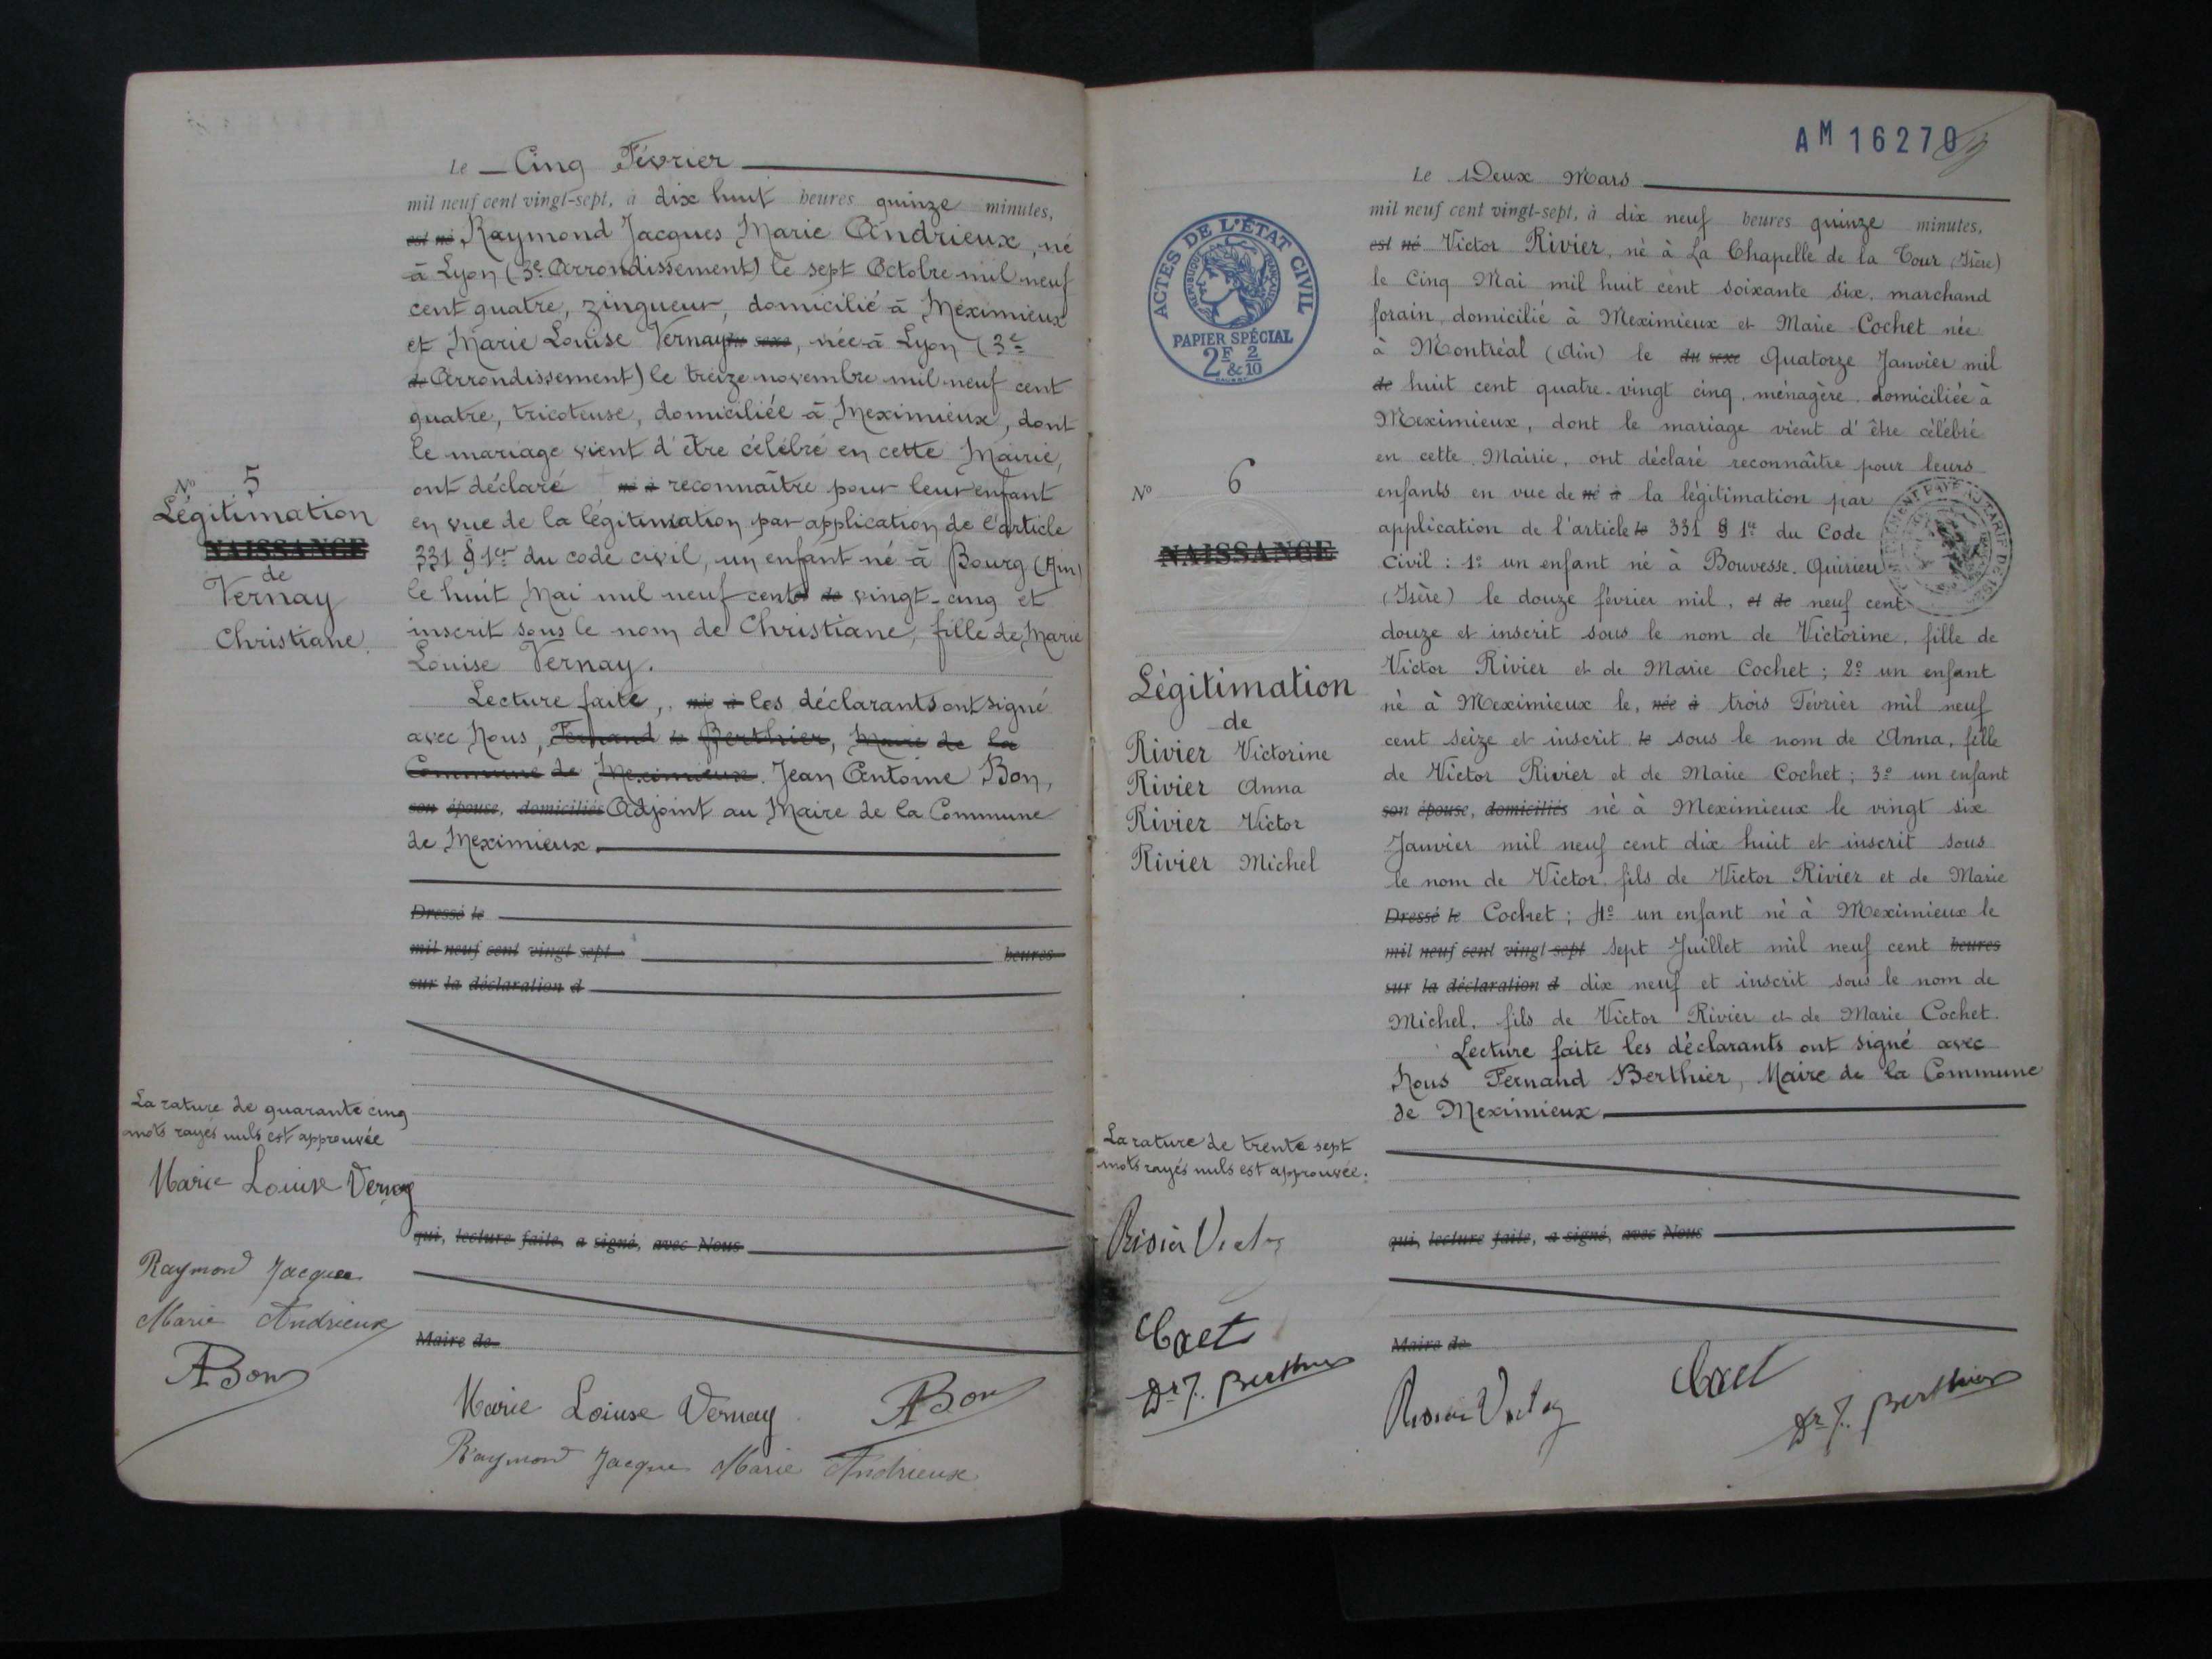 Le Cinq Février
mil neuf cent vingt-sept, à dix huit heures quinze minutes,
est né Raymond Jacques Marie Andrieux, né
à Lyon (3e Arrondissement) le sept Octobre mil neuf
cent quatre, zingueur, domicilié à Meximieux
et Marie Louise Vernay du sexe, née à Lyon (3e
de Arrondissement) le treize novembre mil neuf cent
quatre, tricoteuse, domiciliée à Meximieux, dont
le mariage vient d'être célébré en cette Mairie,
ont déclaré né à reconnaître pour leur enfant
en vue de la légitimation par application de l'article
331 § 1er du code civil, un enfant né à Bourg (Ain)
le huit Mai mil neuf cent et de vingt-cinq et
inscrit sous le nom de Christiane, fille de Marie
Louise Vernay.
Lecture faite, née à les déclarants ont signé
avec Nous, Fernand le Berthier, Maire de la
Commune de Meximieux. Jean Antoine Bon,
son épouse, domiciliés Adjoint au Maire de la Commune
de Meximieux.
Dressé le
mil neuf cent vingt sept heures
sur la déclaration d
qui, lecture faite, a signé, avec Nous
Maire de
Marie Loiuse Vernay ABon
Raymond Jacque Marie Andrieux
No 5
Légitimation
NAISSANCE
de
Vernay
Christiane.
La rature de quarante cinq
mots rayés nuls est approuvée
Marie Louise Vernay
Raymond Jacques
Marie Andrieux
ABon
AM 16270
Le Deux Mars
mil neuf cent vingt-sept, à dix neuf heures quinze minutes,
est né Victor Rivier, né à La Chapelle de la Tour (Isère)
le Cinq Mai mil huit cent soixante six, marchand
forain, domicilié à Meximieux et Marie Cochet née
à Montréal (Ain) le du sexe Quatorze Janvier mil
de huit cent quatre-vingt cinq, ménagère, domiciliée à
Meximieux, dont le mariage vient d'être célébré
en cette Mairie, ont déclaré reconnaître pour leurs
enfants en vue de né à la légitimation par
application de l'article le 331 § 1er du Code
Civil : 1º un enfant né à Bouvesse-Quirieu
(Isère) le douze février mil, et de neuf cent
douze et inscrit sous le nom de Victorine, fille de
Victor Rivier et de Marie Cochet ; 2º un enfant
né à Meximieux le, née à trois Février mil neuf
cent seize et inscrit le sous le nom de Anna, fille
de Victor Rivier et de Marie Cochet ; 3º un enfant
son épouse, domiciliés né à Meximieux le vingt six
Janvier mil neuf cent dix huit et inscrit sous
le nom de Victor, fils de Victor Rivier et de Marie
Dressé le Cochet ; 4º un enfant né à Meximieux le
mil neuf cent vingt-sept sept Juillet mil neuf cent heures
sur la déclaration d dix neuf et inscrit sous le nom de
Michel, fils de Victor Rivier et de Marie Cochet.
Lecture faite les déclarants ont signé avec
Nous Fernand Berthier, Maire de la Commune
de Meximieux.
qui, lecture faite, a signé, avec Nous
Maire de
Dr F. Berthier
ACTES DE L'ÉTAT CIVIL
RÉPUBLIQUE FRANÇAISE
PAPIER SPÉCIAL
2F & 2/10
No 6
NAISSANCE
Légitimation
de
Rivier Victorine
Rivier Anna
Rivier Victor
Rivier Michel
La rature de trente sept
mots rayés nuls est approuvée.
Dr F. Berthier